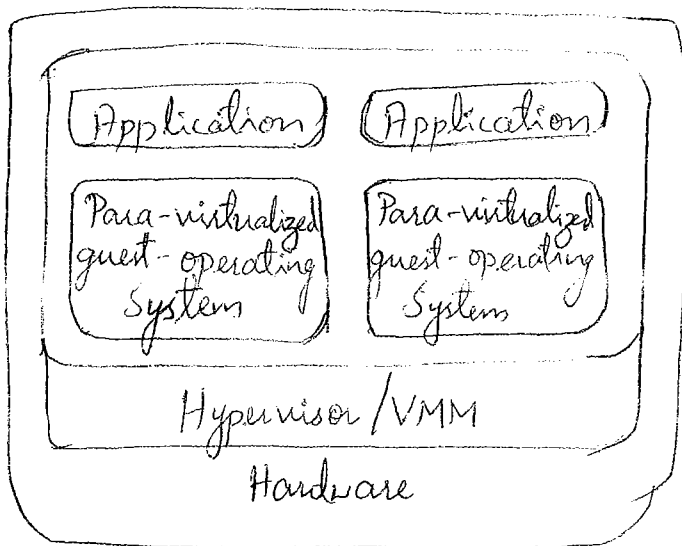 Application
Application
Para-virtualized
guest-operating
System
Para-virtualized
guest-operating
System
Hypervisor/VMM
Hardware